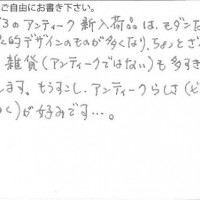 ご自由にお書き下さい。
3のアンティーク新入荷品は、モダンな
的デザインのものが多くなり、ちょっとざ
雑貨(アンティークではない)も多すぎ
します。もうすこし、アンティークらしさ(ど
く)が好みです…。